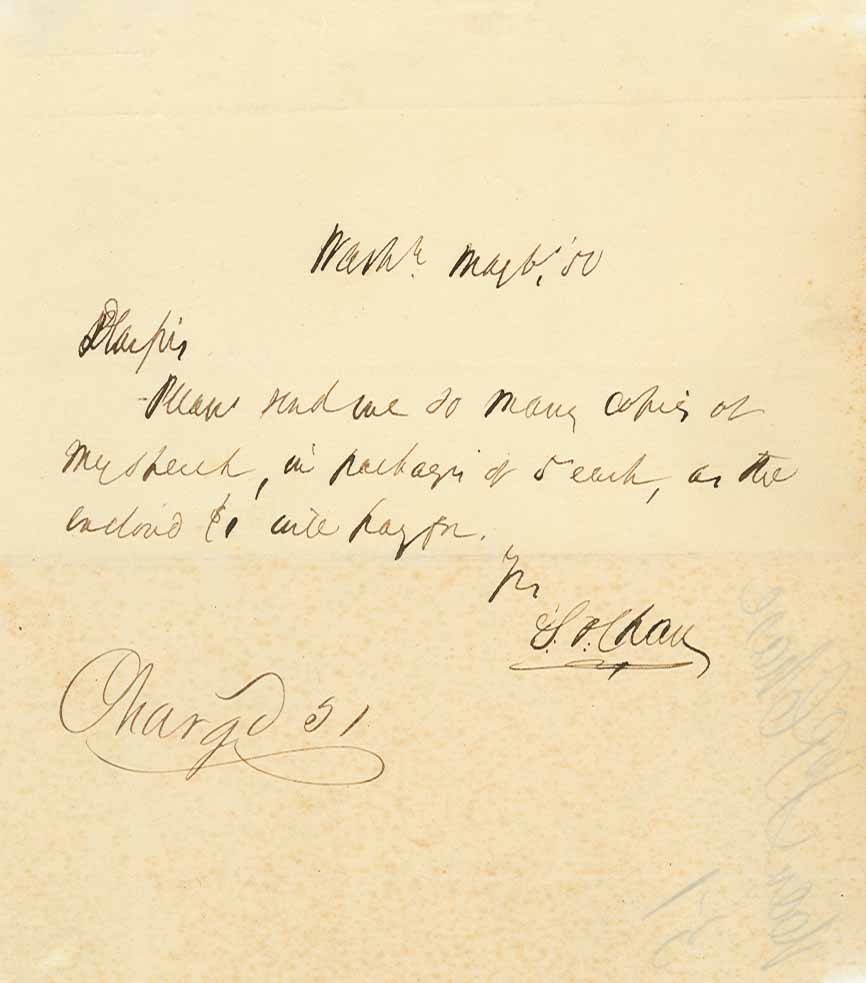 Washn. May 6, '50
Dear Sir,
Please send me so many copies of
my speech, in packages of 5 each, as the
enclosed $1 will pay for.
Yrs
S. P. Chase
Charg'd 51
S P Chase
51